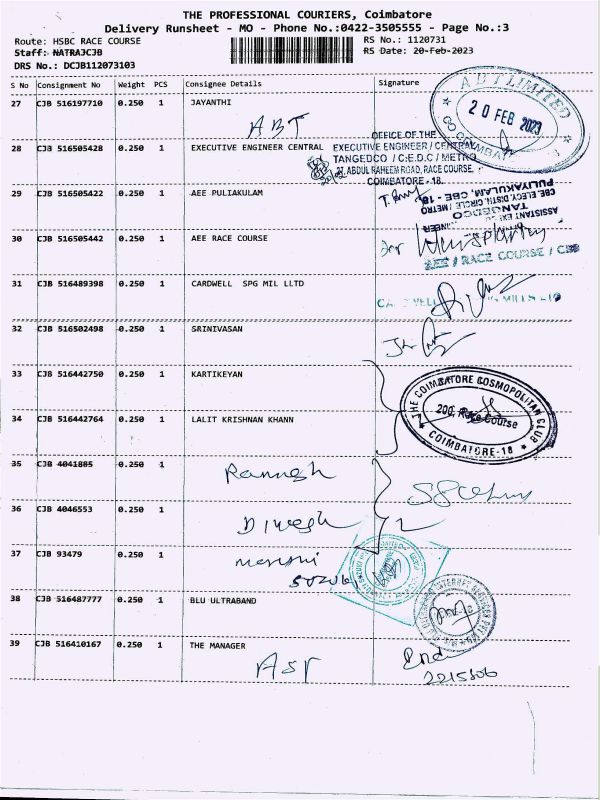 THE PROFESSIONAL COURIERS, Coimbatore
Delivery Runsheet - MO - Phone No.:0422-3505555 - Page No.:3
Route: HSBC RACE COURSE RS No.: 1120731
Staff: NATRAJCJB RS Date: 20-Feb-2023
DRS No.: DCJB112073103
S No Consignment No Weight PCS Consignee Details Signature
27 CJB 516197710 0.250 1 JAYANTHI
ABT
ABT LIMITED
20 FEB 2023
COIMBATORE
28 CJB 516505428 0.250 1 EXECUTIVE ENGINEER CENTRAL
OFFICE OF THE
EXECUTIVE ENGINEER / CENTRAL
TANGEDCO / C.E.D.C / METRO
ABDUL RAHEEM ROAD, RACE COURSE,
COIMBATORE - 18.
29 CJB 516505422 0.250 1 AEE PULIAKULAM
ASSISTANT EXE ENGINEER
TANGEDCO
CBE. ELECY. DISTN. CIRCLE / METRO
PULIYAKULAM, CBE - 18.
30 CJB 516505442 0.250 1 AEE RACE COURSE
AEE / RACE COURSE / CBE
31 CJB 516489398 0.250 1 CARDWELL SPG MIL LLTD
MILLS LTD
32 CJB 516502498 0.250 1 SRINIVASAN
33 CJB 516442750 0.250 1 KARTIKEYAN
THE COIMBATORE COSMOPOLITAN CLUB
200, Race Course
COIMBATORE-18
34 CJB 516442764 0.250 1 LALIT KRISHNAN KHANN
35 CJB 4041885 0.250 1
Ramesh
36 CJB 4046553 0.250 1
Dinesh
37 CJB 93479 0.250 1
maruthi
suzuki
38 CJB 516487777 0.250 1 BLU ULTRABAND
39 CJB 516410167 0.250 1 THE MANAGER
2215806